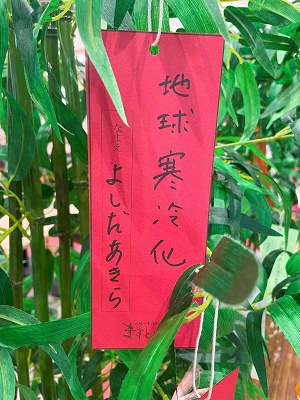 地球寒冷化
なまえ
よしだあきら
ますと